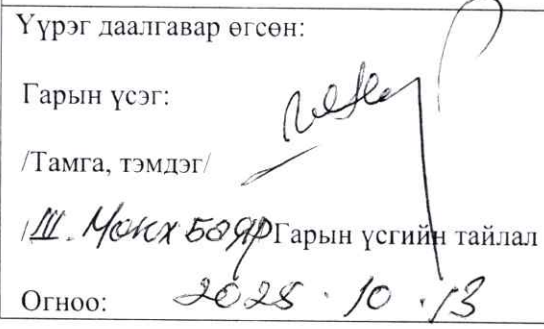 Үүрэг даалгавар өгсөн:
Гарын үсэг:
/Тамга, тэмдэг/
/Ш. Мөнхбаяр Гарын үсгийн тайлал
Огноо: 2025.10.13